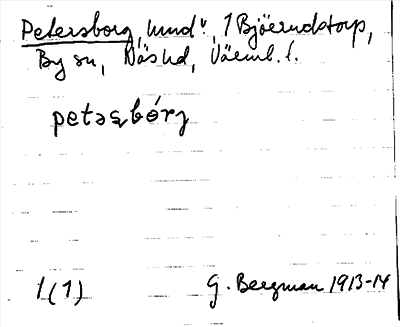 Petersborg, "und", 1 Bjöerndstorp,
By sn, Näs hd, Väeml. l.
petəʂbórj
1(1) G. Bergman 1913-14